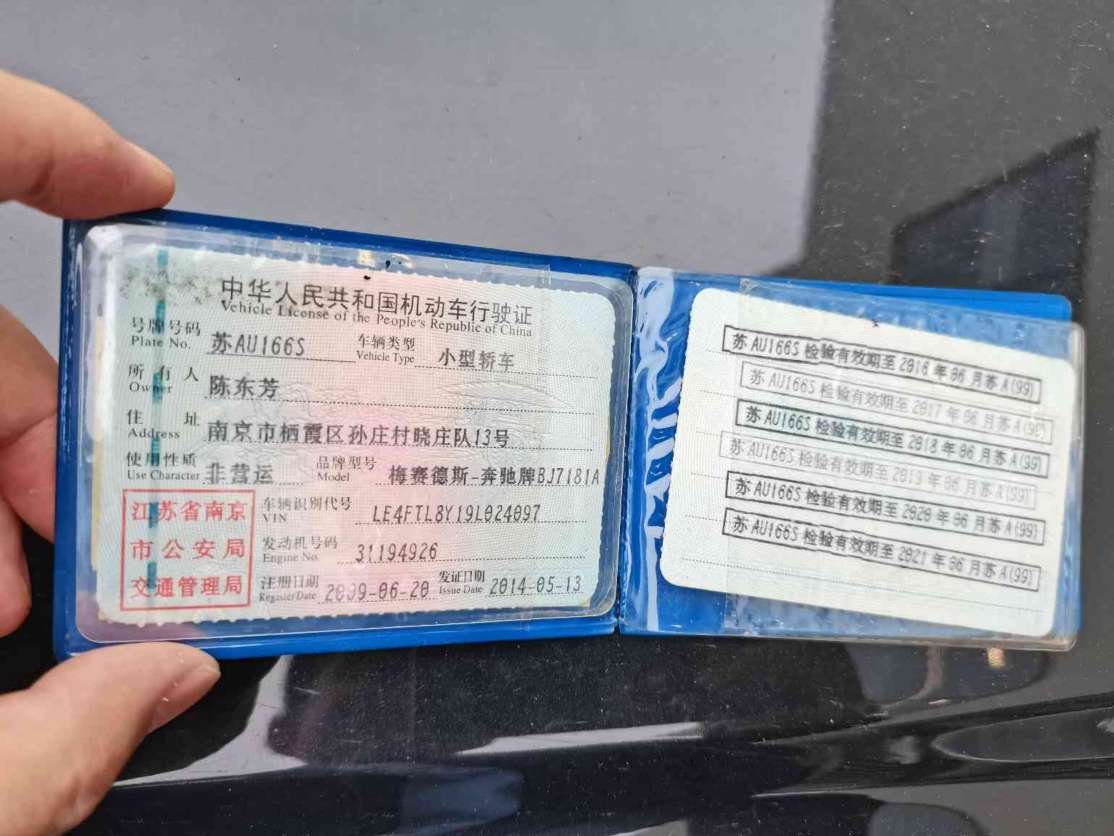 中华人民共和国机动车行驶证
Vehicle License of the People's Republic of China
号牌号码 苏AU166S 车辆类型 小型轿车
Plate No. Vehicle Type
所有人 陈东芳
Owner
住址 南京市栖霞区孙庄村晓庄队13号
Address
使用性质 非营运 品牌型号 梅赛德斯-奔驰牌BJ7181A
Use Character Model
江苏省南京
市公安局
交通管理局
车辆识别代号 LE4FTL8Y19L024097
VIN
发动机号码 31194926
Engine No.
注册日期 2009-06-20 发证日期 2014-05-13
Register Date Issue Date
苏AU166S检验有效期至2016年06月苏A(99)
苏AU166S检验有效期至2017年06月苏A(99)
苏AU166S检验有效期至2018年06月苏A(99)
苏AU166S检验有效期至2019年06月苏A(99)
苏AU166S检验有效期至2020年06月苏A(99)
苏AU166S检验有效期至2021年06月苏A(99)